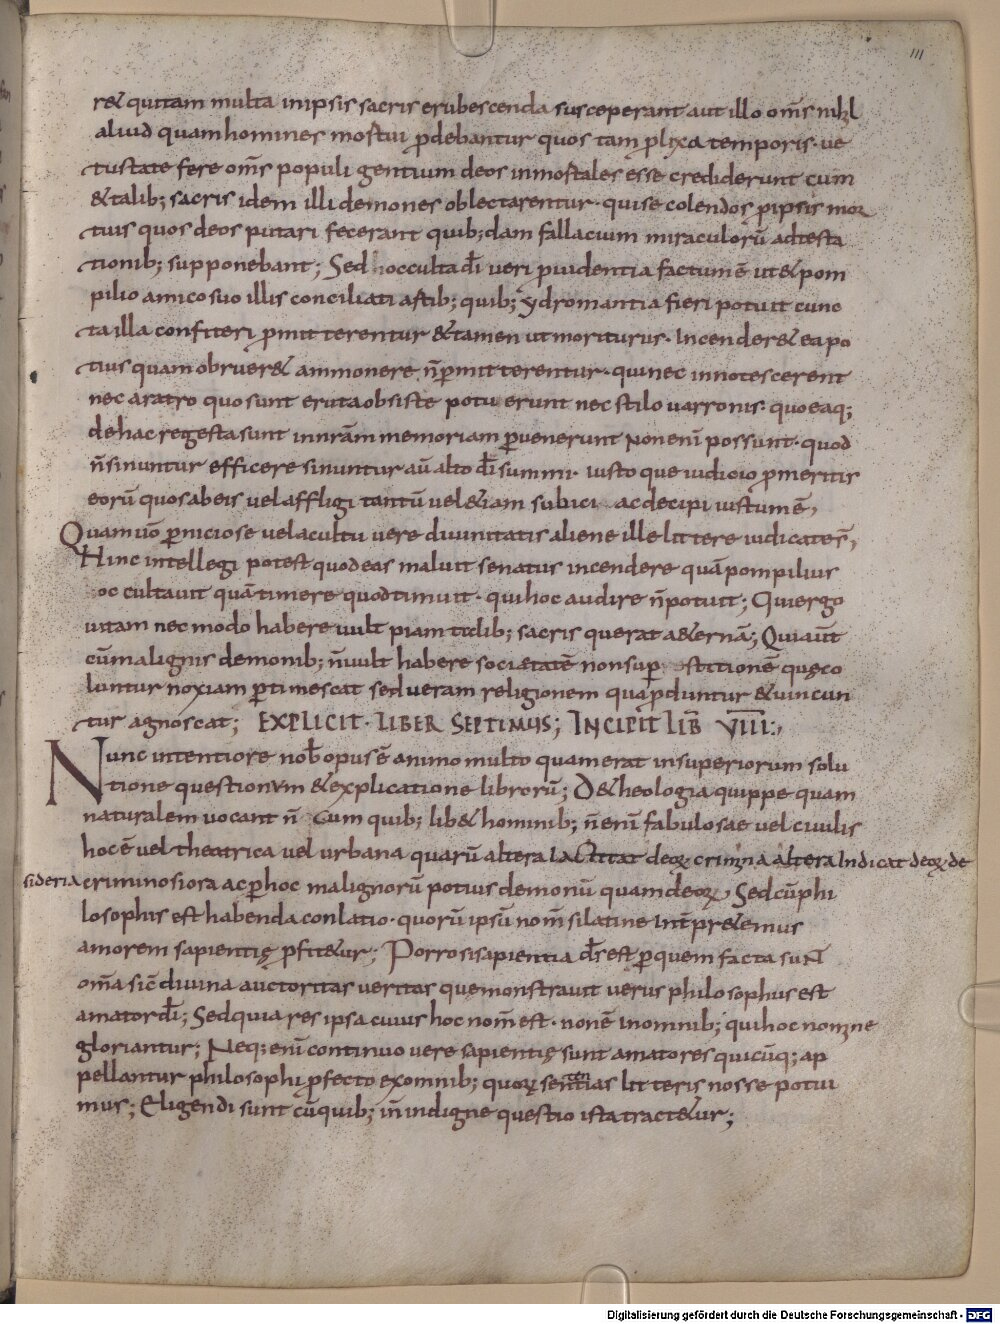 111
r& quitam multa inipsis sacris erubescenda susceperant aut illo om̄s nihil
aliud quam homines mortui ꝓdebantur quos tam ꝓlixa temporis · ue
tustate fere om̄s populi gentium deos inmortales esse crediderunt cum
& talib; sacris idem illi demones oblectarentur · qui se colendos ꝑ ipsis mor
tuis quos deos putari fecerant quib;dam fallacium miraculorū adtesta
tionib; supponebant; Sed occulta dī ueri ꝓuidentia factum ē ut & pom
pilio amico suo illis conciliati artib; quib; ydromantia fieri potuit cunc
ta illa confiteri ꝑmitterentur & tamen ut moriturus · Incender& ea po
tius quam obruer& ammonere n̄ ꝑmitterentur · qui nec innotescerent
nec aratro quo sunt eruta obsistere potuerunt nec stilo uarronis · quo eaq;
de hac re gesta sunt in nr̄am memoriam ꝑuenerunt Non enī possunt · quod
n̄ sinuntur efficere sinuntur aū alto dī summi · iustoque iudicio ꝓ meritis
eorū quos ab eis uel affligi tantū uel &iam subici ac decipi iustum ē,
Quam ūo ꝑniciose uel a cultu uere diuinitatis aliene ille littere iudicate s̄,
Hinc intellegi potest quod eas maluit senatus incendere quā pompilius
occultauit quā timere quod timuit · qui hoc audire n̄ potuit; Qui ergo
uitam nec modo habere uult piam tidlib; sacris querat a&ernā; Qui aūt
cū malignis demonib; n̄ uult habere sociatatē non sup stitionē quęco
luntur noxiam ꝑtimescat sed ueram religionem qua ꝓduntur & uincun
tur agnoscat; EXPLICIT · LIBER SEPTIMUS; INCIPIT LIB̄ VIIII;
Nunc intentiore nob̄ opus ē animo multo quam erat in superiorum solu
tione questionum & explicatione librorū; De theologia quippe quam
naturalem uocant n̄ cum quib; lib& hominib; n̄ enī fabulosae uel ciuilis
hoc ē uel theatrica uel urbana quarū altera IACtitat deoꝝ crimina altera Indicat deoꝝ de
sideria criminosiora ac ꝑhoc malignorū potius demonū quam deoꝝ, Sed cū phi
losophis est habenda conlatio · quorū ipsū nom̄ si latine Int̄pr&emus
amorem sapientię ꝓfit&ur; Porro si sapientia d̄s est ꝑ quem facta suN̄
om̄a sic̄ diuina auctoritas ueritas que monstrauit uerus philosophus est
amator dī; Sed quia res ipsa cuius hoc nom̄ est · non ē In omnib; qui hoc nomine
gloriantur; Neq; enī continuo uere sapientię sunt amatores quicūq; ap
pellantur philosophi ꝓfecto ex omnib; quoꝝ sententias litteris nosse potui
mus; Eligendi sunt cū quib; in̄ indigne questio ista tract&ur;
Digitalisierung gefördert durch die Deutsche Forschungsgemeinschaft - DFG